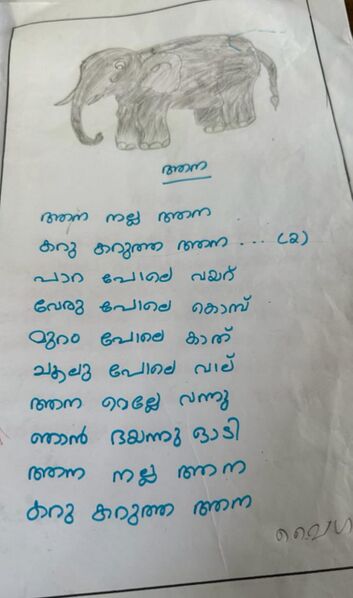 ആന
ആന നല്ല ആന
കറു കറുത്ത ആന ... (2)
പാറ പോലെ വയറ്
വേരു പോലെ കൊമ്പ്
മുറം പോലെ കാത്
ചൂലു പോലെ വാല്
ആന റെല്ലേ വന്നു
ഞാൻ ഭയന്നു ഓടി
ആന നല്ല ആന
കറു കറുത്ത ആന